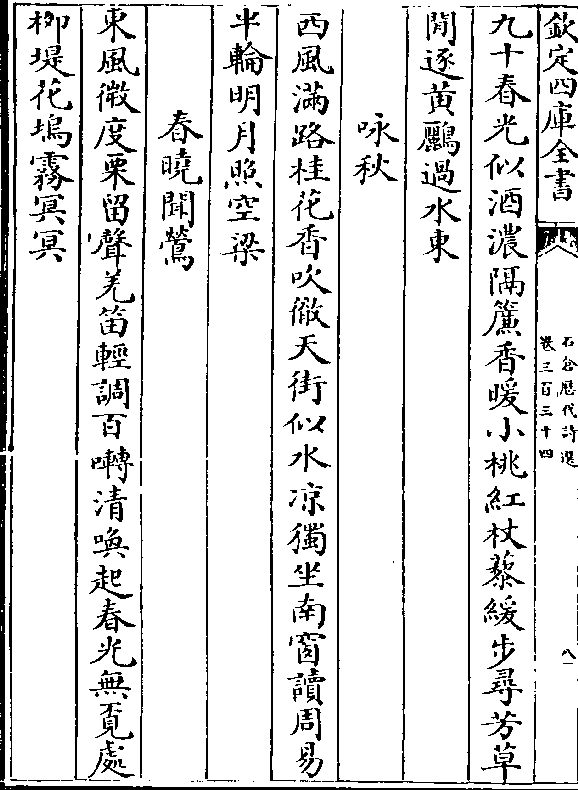 欽定四庫全書
石倉歷代詩選
卷三百三十四
八
九十春光似酒濃隔簾香暖小桃紅杖藜緩步尋芳草
閒逐黃鸝過水東
咏秋
西風滿路桂花香吹徹天街似水凉獨坐南窗讀周易
半輪明月照空梁
春曉聞鶯
東風微度栗留聲羌笛輕調百囀清喚起春光無覔處
柳堤花塢霧冥冥